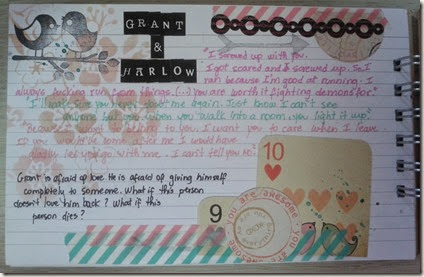 GRANT
&
HARLOW
"I screwed up with you.
I got scared and I screwed up. So I
ran because I'm good at running. I
always fucking run from things. (...) you are worth fighting demons for."
"I'll make you happy about me again. Just know I can't see
anyone but you. When you walk into a room, you light it up."
"Because I want to belong to you. I want you to care when I leave.
If you would've come after me I would have
let you go with me. I can't tell you no."
Grant is afraid of love. He is afraid of giving himself
completely to someone. What if this person
doesn't love him back? What if this
person dies?
10
9
you are awesome